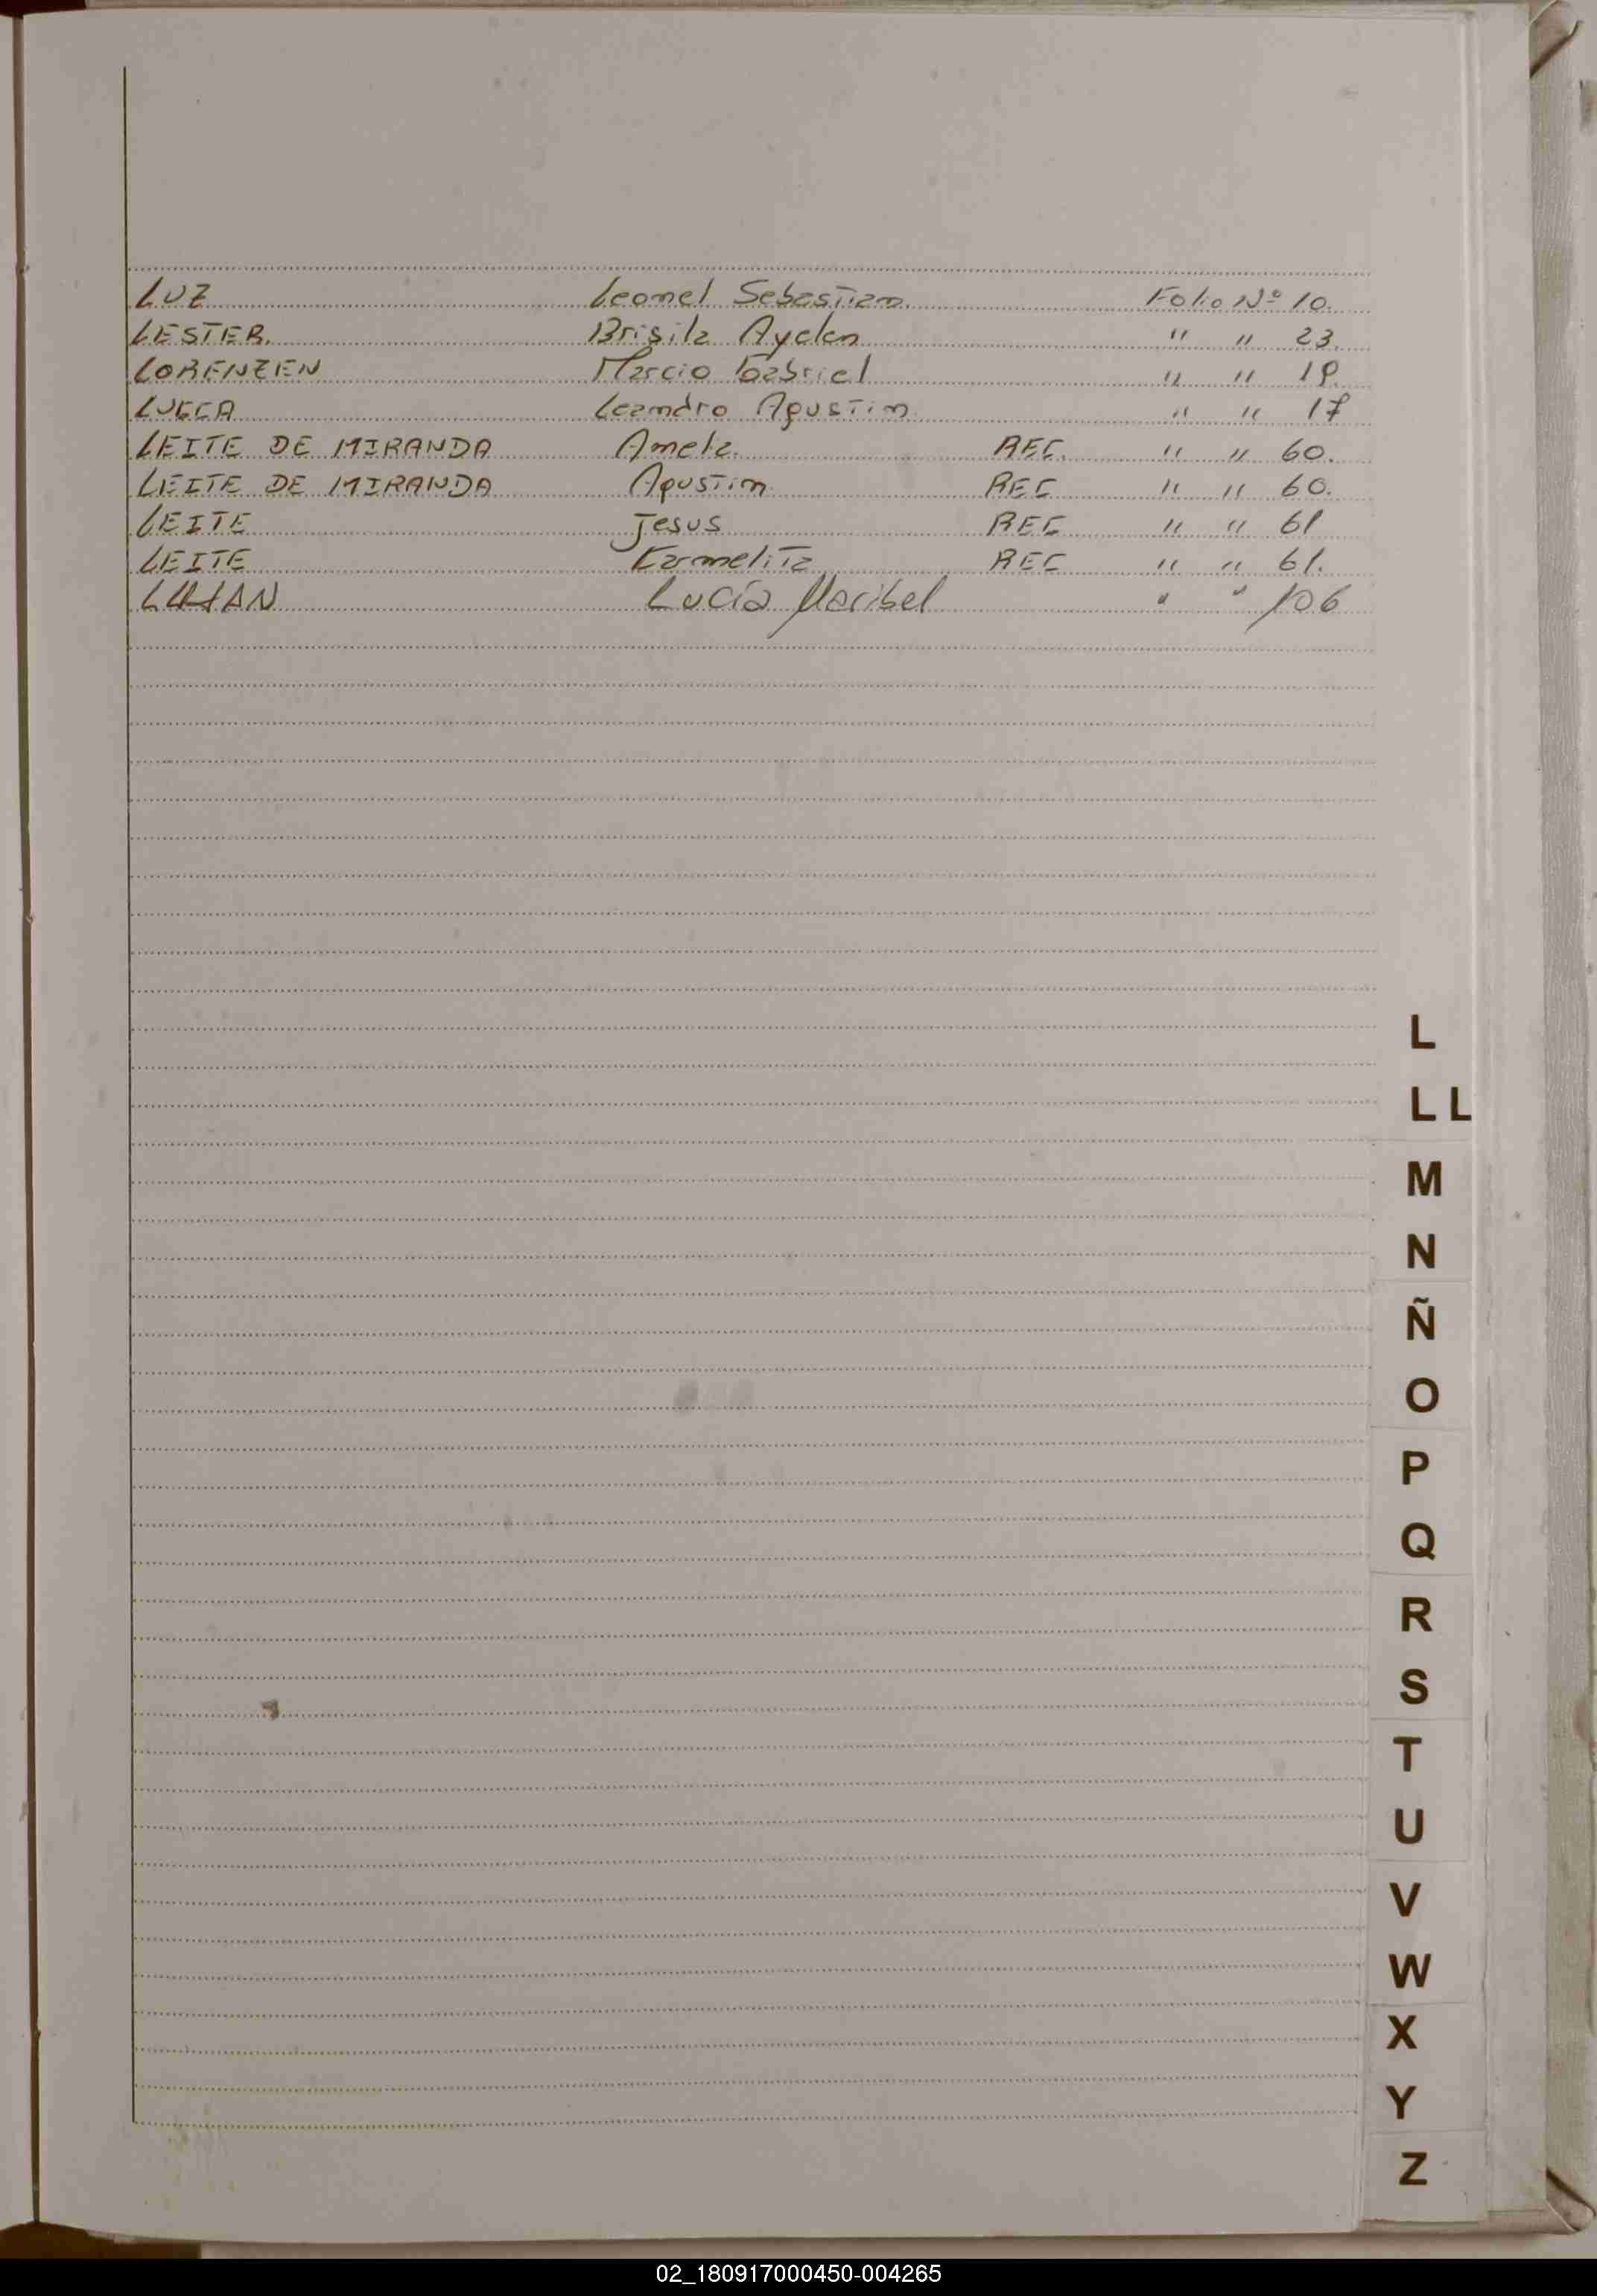 LUZ Leonel Sebastian. Folio Nº 10.
LESTER. Brisila Ayelen " " 23.
LORENZEN Marcio Gabriel " " 18.
LUGCA Leandro Agustin " " 17
LEITE DE MIRANDA Amelz. REC. " " 60.
LEITE DE MIRANDA Agustin REC " " 60.
LEITE Jesus REC " " 61
LEITE Karmelita REC " " 61.
Lucía Maribel " " 106
L
LL
M
N
Ñ
O
P
Q
R
S
T
U
V
W
X
Y
Z
02_180917000450-004265